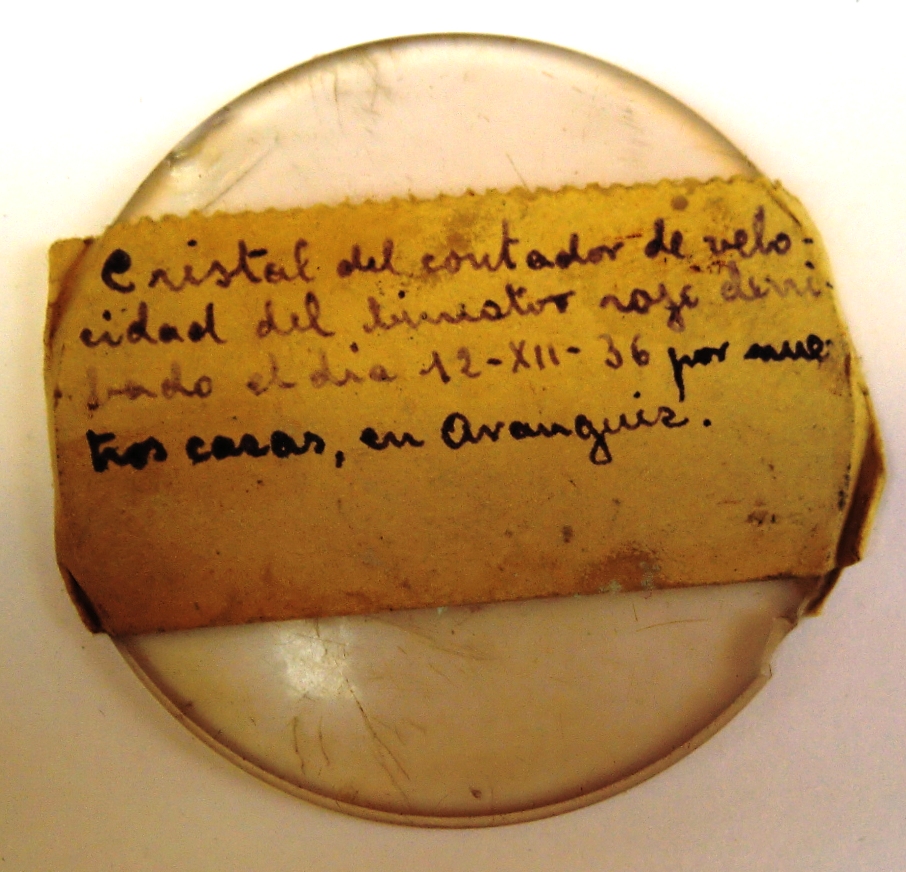 Cristal del contador de velo-
cidad del bimotor rojo derri-
bado el dia 12-XII-36 por nues-
tros cazas, en Aranguiz.